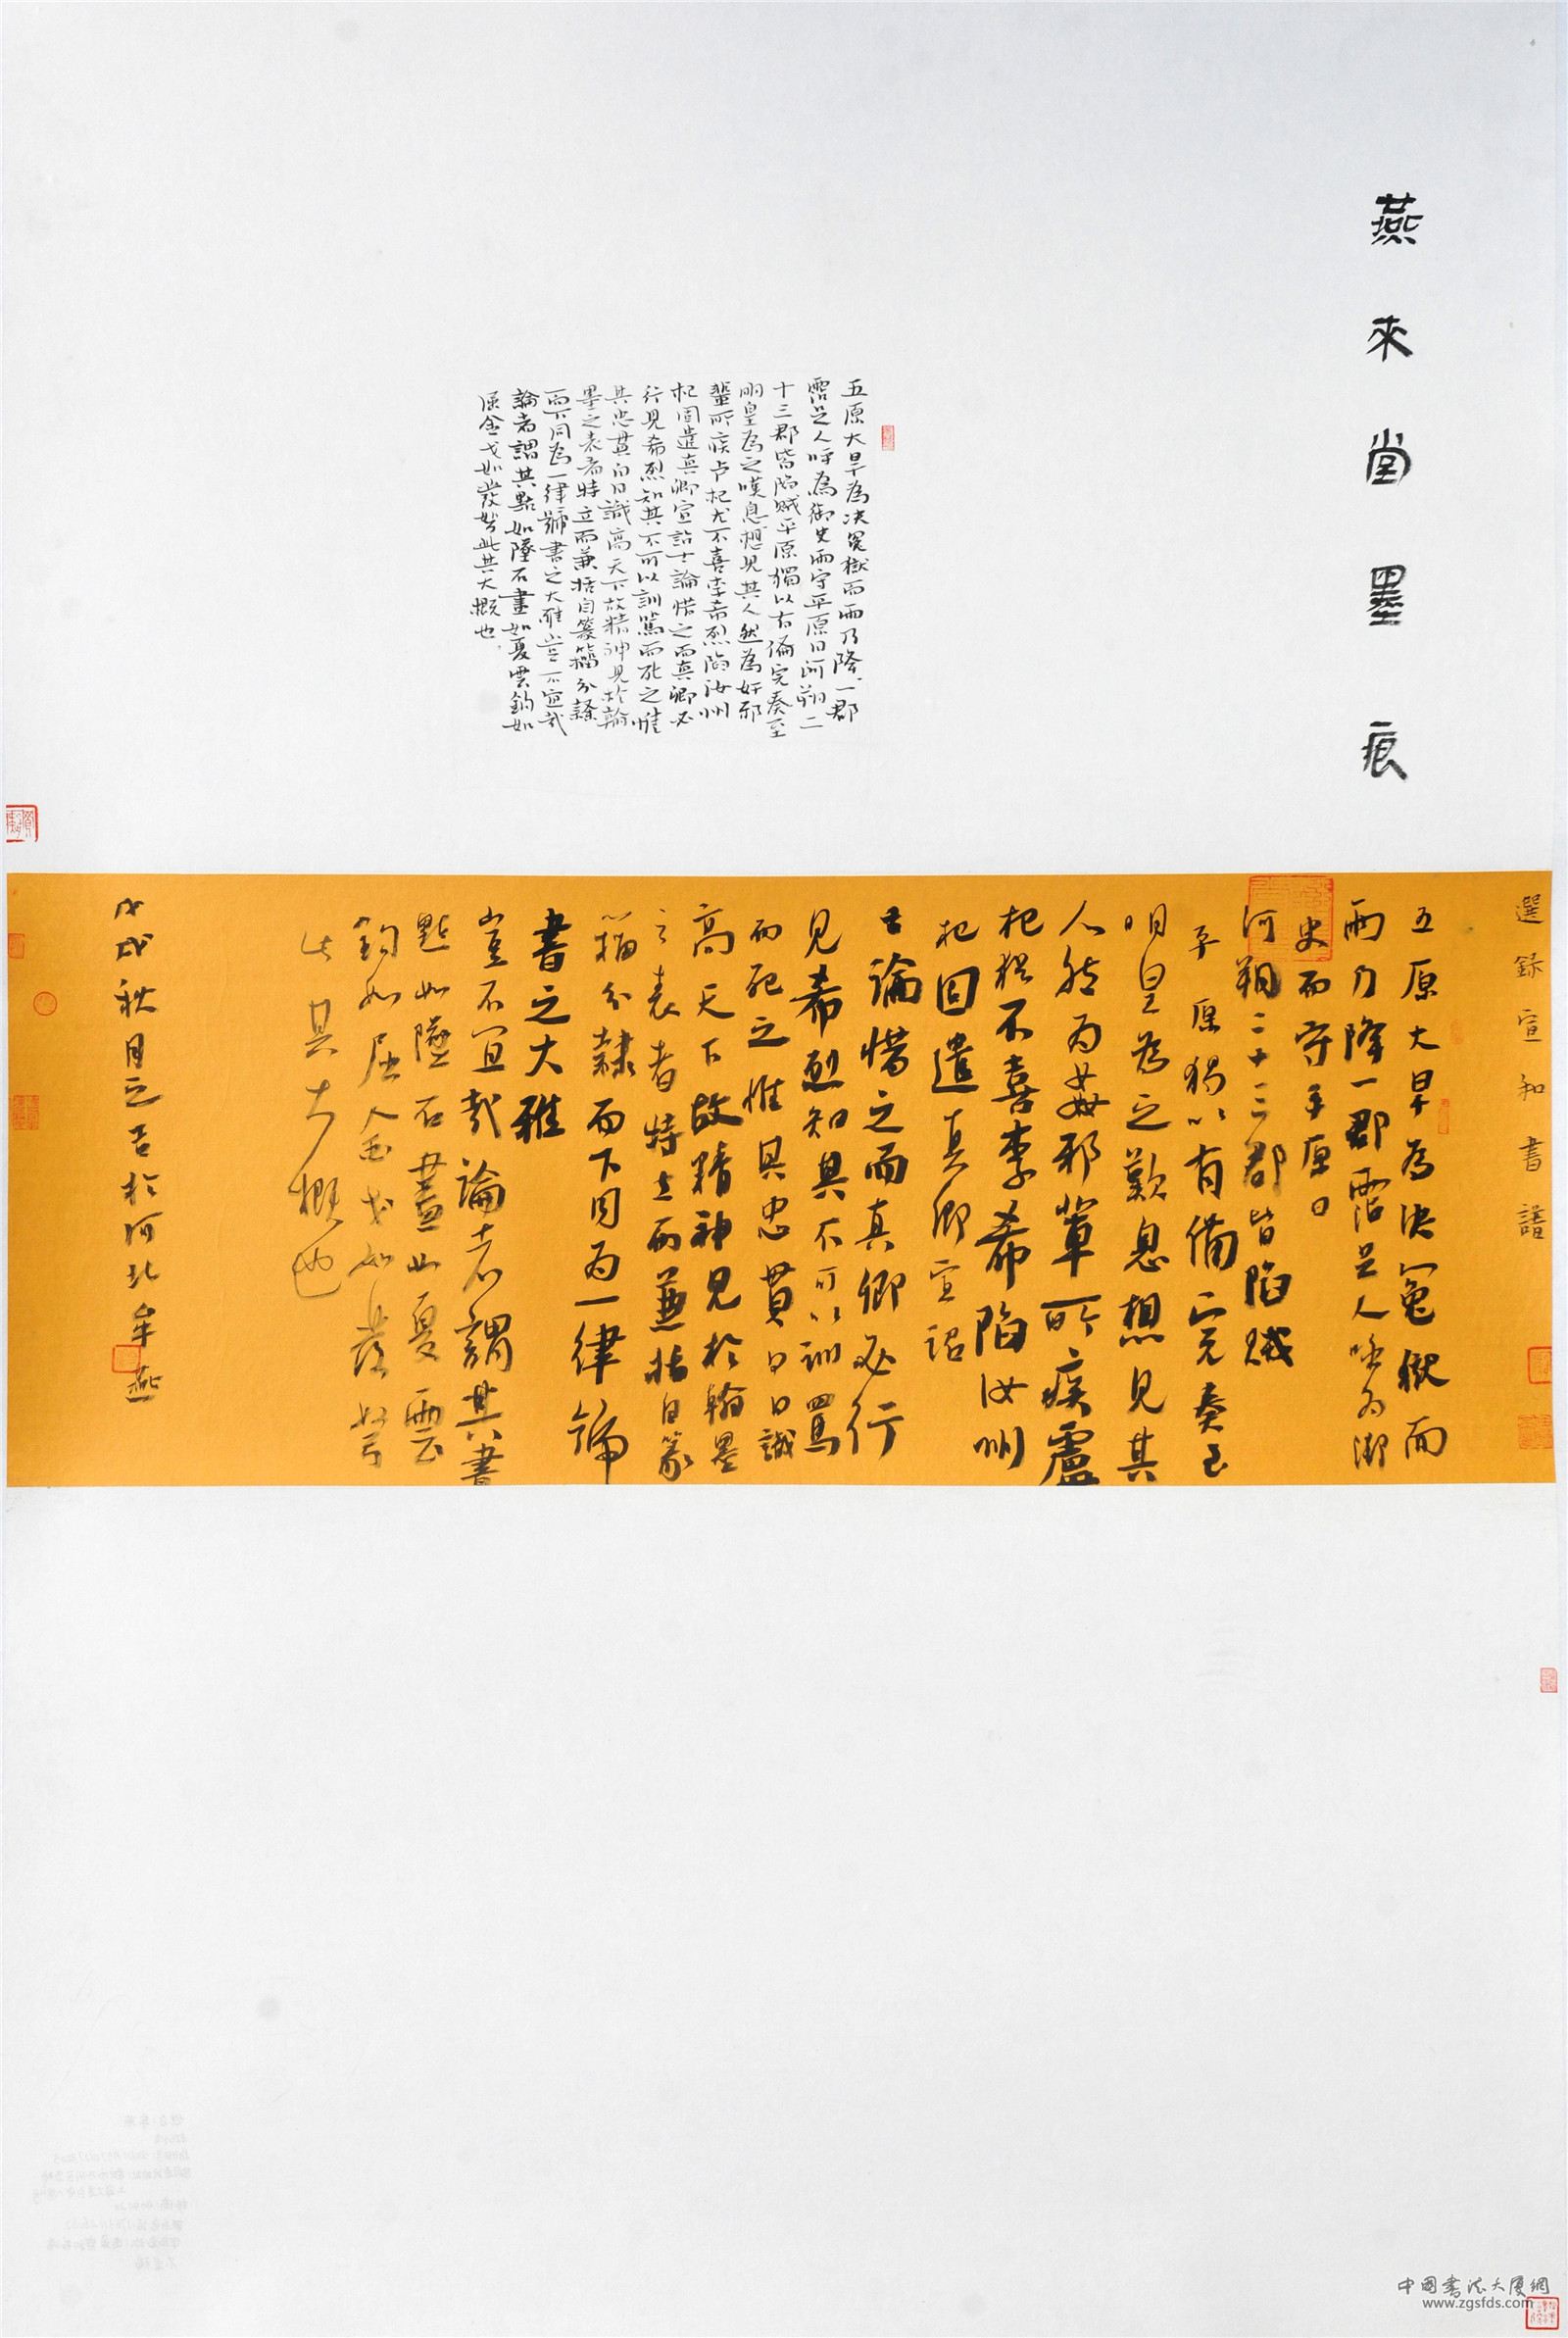 燕來堂墨痕
五原大旱為決冤獄而雨乃降一郡
霑足人呼為御史雨守平原日河朔二
十三郡皆陷賊平原獨以有備完奏至
明皇為之嘆息想見其人然為奸邪
輩所疾卢杞尤不喜李希烈陷汝州
杞因遣真卿宣詔士論惜之而真卿必
行見希烈知其不可以訓罵而死之惟
其忠貫白日識高天下故精神見於翰
墨之表者特立而兼括自篆籀分隸
而下同為一律號書之大雅豈不宜哉
論者謂其點如墜石畫如夏雲鈎如
屈金戈如發弩此其大概也
選録宣和書譜
五原大旱為決冤獄而
雨乃降一郡霑足人呼為御
史而守平原日
河朔二十三郡皆陷賊
平原獨以有備完奏至
明皇為之歎息想見其
人然為姦邪輩所疾盧
杞不喜李希陷汝州
杞因遣真卿宣詔
士論惜之而真卿必行
見希烈知其不可以訓罵
而死之惟其忠貫白日識
高天下故精神見於翰墨
之表者特立而兼括自篆
籀分隸而下同為一律號
書之大雅
豈不宜哉論者謂其書
點如墜石畫如夏雲
鈎如屈金戈如發弩
此其大概也
戊戌秋月之吉於河北牟燕
中国书法大厦網
www.zgsfds.com